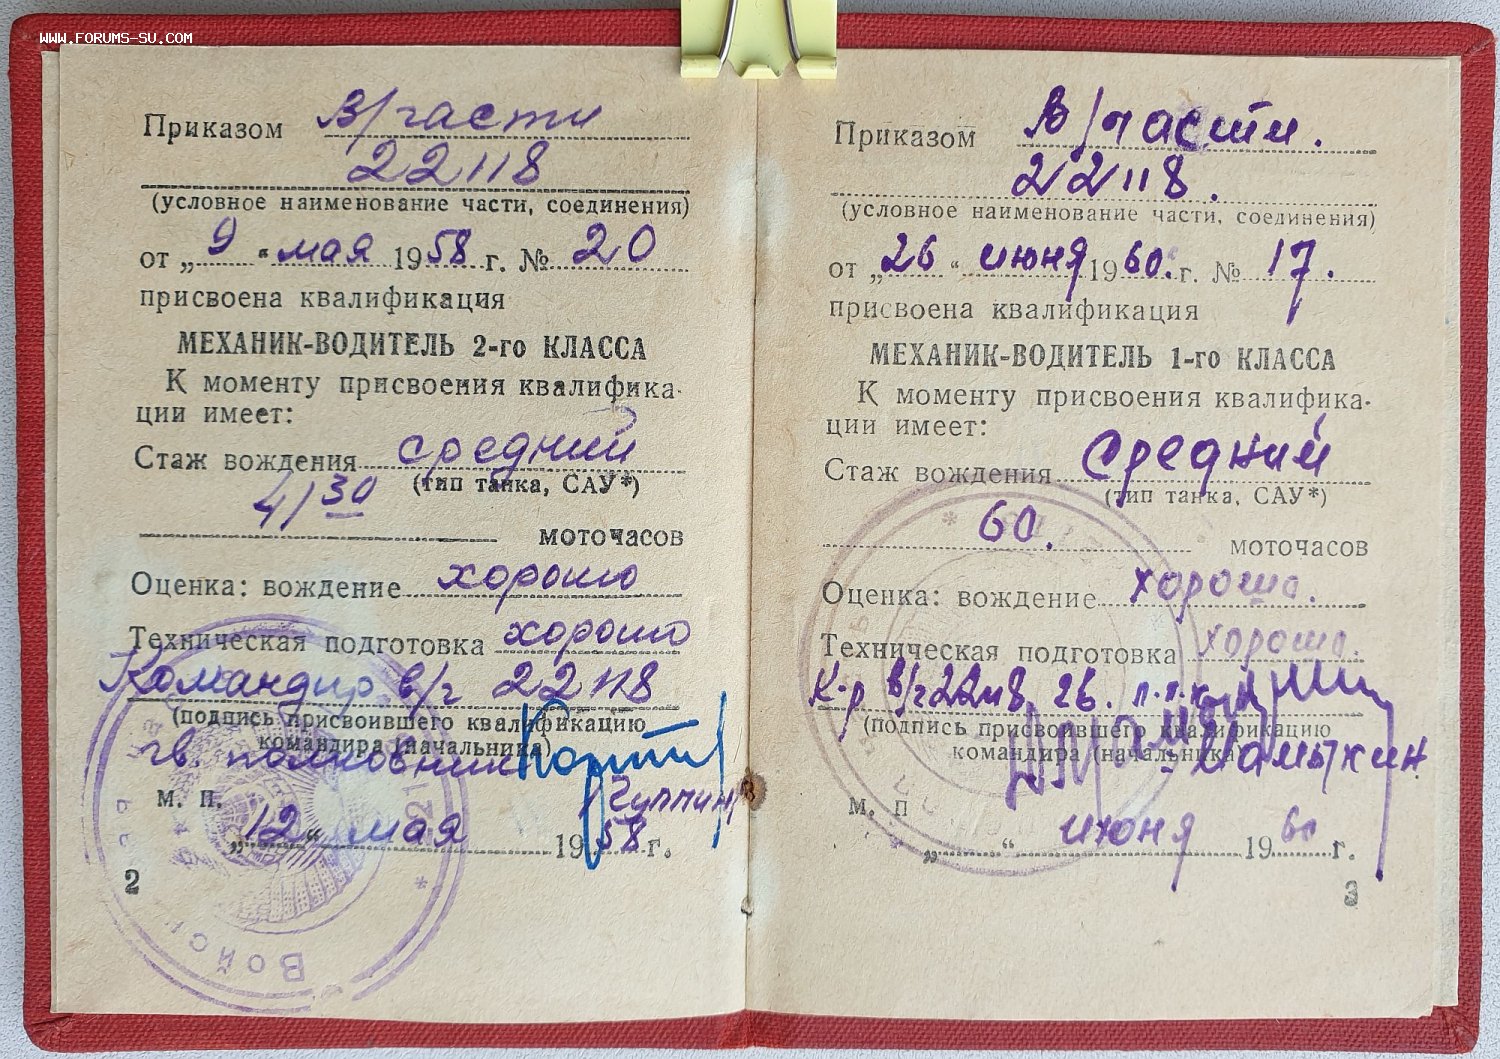 WWW.FORUMS-SU.COM
Приказом в/части
22118
(условное наименование части, соединения)
от „ 9 “ мая 1958 г. № 20
присвоена квалификация
МЕХАНИК-ВОДИТЕЛЬ 2-го КЛАССА
К моменту присвоения квалифика-
ции имеет:
Стаж вождения средний
(тип танка, САУ*)
41 30 моточасов
Оценка: вождение хорошо
Техническая подготовка хорошо
Командир в/ч 22118
(подпись присвоившего квалификацию
командира (начальника)
гв. полковник
м. п.
„ 12 “ мая 1958 г.
2
Войск
Приказом В/части.
22118.
(условное наименование части, соединения)
от „ 26 “ июня 1960. г. № 17.
присвоена квалификация
МЕХАНИК-ВОДИТЕЛЬ 1-го КЛАССА
К моменту присвоения квалифика-
ции имеет:
Стаж вождения Средний
(тип танка, САУ*)
60. моточасов
Оценка: вождение хорошо.
Техническая подготовка хорошо.
К-р в/ч 22118 гв. п-п-к
(подпись присвоившего квалификацию
командира (начальника)
м. п
„ “ июня 1960 г.
3